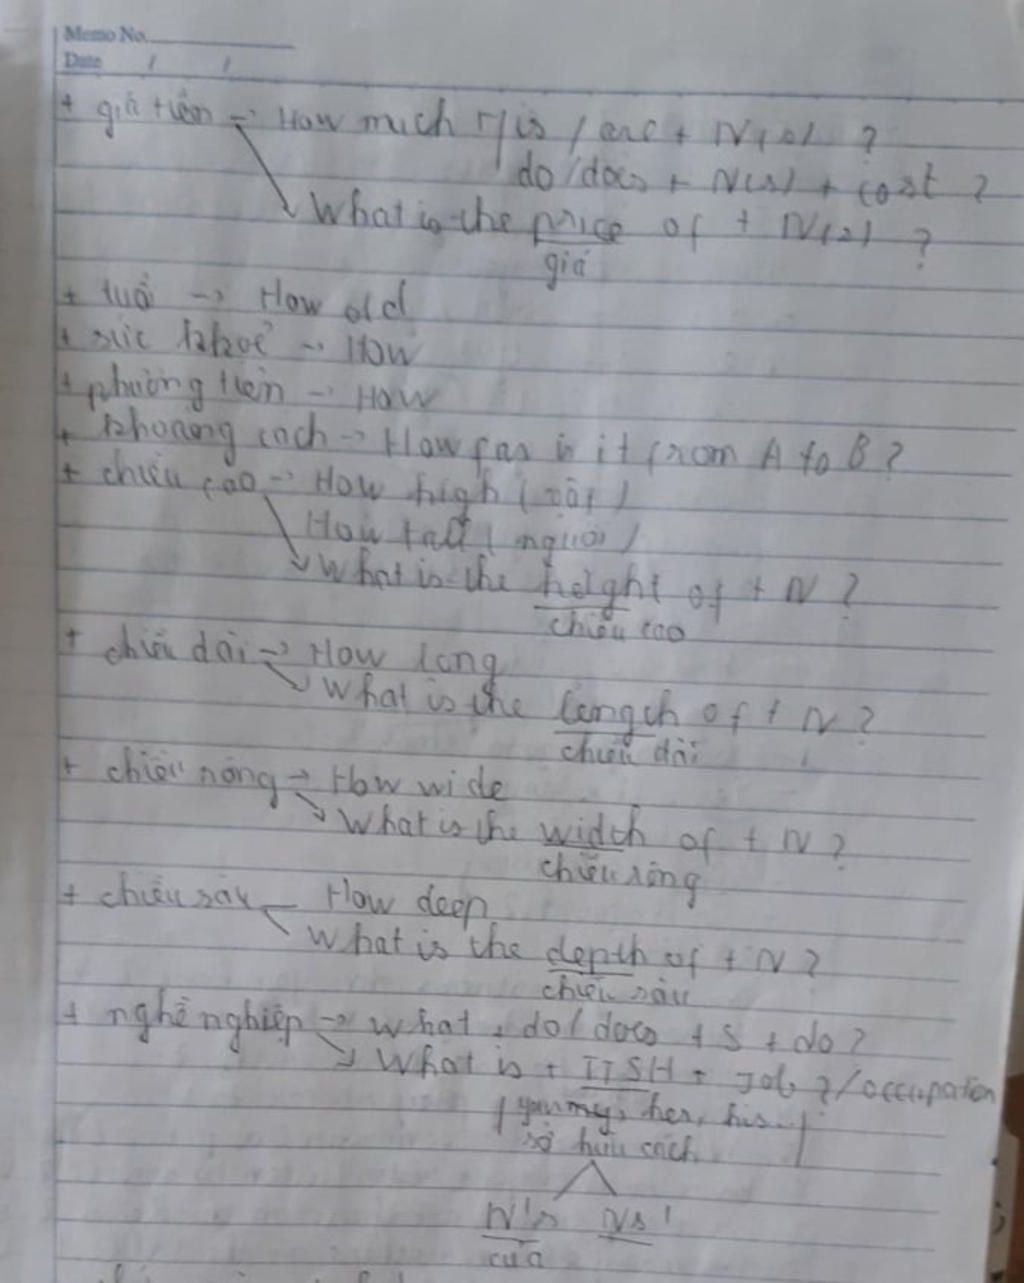 Memo No.
Date / /
+ giá tiền → How much is / are + N(s) ?
do/does + N(s) + cost ?
What is the price of + N(s) ?
giá
+ tuổi → How old
+ sức khoẻ → How
+ phương tiện → How
+ khoảng cách → How far is it from A to B ?
+ chiều cao → How high ( vật )
How tall ( người )
What is the height of + N ?
chiều cao
+ chiều dài → How long
What is the length of + N ?
chiều dài
+ chiều rộng → How wide
What is the width of + N ?
chiều rộng
+ chiều sâu How deep
What is the depth of + N ?
chiều sâu
+ nghề nghiệp → What + do/does + S + do ?
What is + TTSH + job ?/occupation
( your, my, her, his...)
sở hữu cách
N's Ns'
của